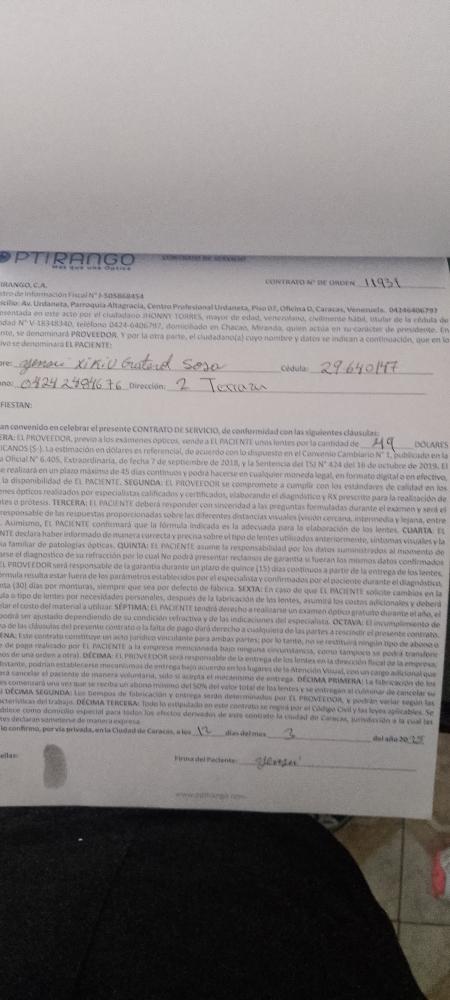 OPTIRANGO CONTRATO DE SERVICIO
Más que una Óptica
CONTRATO N° DE ORDEN 11931
IRANGO, C.A.
stro de Información Fiscal N° J-505868454
icilio: Av. Urdaneta, Parroquia Altagracia, Centro Profesional Urdaneta, Piso 07, Oficina O, Caracas, Venezuela. 04246406797
esentada en este acto por el ciudadano JHONNY TORRES, mayor de edad, venezolano, civilmente hábil, titular de la cédula de
dad N° V-18348340, teléfono 0424-6406797, domiciliado en Chacao, Miranda, quien actúa en su carácter de presidente. En
nte, se denominará PROVEEDOR. Y por la otra parte, el ciudadano(a) cuyo nombre y datos se indican a continuación, que en lo
ivo se denominará EL PACIENTE:
bre: Sosa Cédula: 29640147
no: 04242484676 Dirección: 2
FIESTAN:
an convenido en celebrar el presente CONTRATO DE SERVICIO, de conformidad con las siguientes cláusulas:
ERA: EL PROVEEDOR, previo a los exámenes ópticos, vende a EL PACIENTE unos lentes por la cantidad de 49 DÓLARES
ICANOS ($-). La estimación en dólares es referencial, de acuerdo con lo dispuesto en el Convenio Cambiario N° 1, publicado en la
a Oficial N° 6.405, Extraordinaria, de fecha 7 de septiembre de 2018, y la Sentencia del TSJ N° 424 del 16 de octubre de 2019. El
e realizará en un plazo máximo de 45 días continuos y podrá hacerse en cualquier moneda legal, en formato digital o en efectivo,
la disponibilidad de EL PACIENTE. SEGUNDA: EL PROVEEDOR se compromete a cumplir con los estándares de calidad en los
enes ópticos realizados por especialistas calificados y certificados, elaborando el diagnóstico y RX prescrito para la realización de
tes o prótesis. TERCERA: EL PACIENTE deberá responder con sinceridad a las preguntas formuladas durante el examen y será el
responsable de las respuestas proporcionadas sobre las diferentes distancias visuales (visión cercana, intermedia y lejana, entre
. Asimismo, EL PACIENTE confirmará que la fórmula indicada es la adecuada para la elaboración de los lentes. CUARTA: EL
NTE declara haber informado de manera correcta y precisa sobre el tipo de lentes utilizados anteriormente, síntomas visuales y la
ia familiar de patologías ópticas. QUINTA: EL PACIENTE asume la responsabilidad por los datos suministrados al momento de
arse el diagnostico de su refracción por lo cual No podrá presentar reclamos de garantía si fueran los mismos datos confirmados
EL PROVEEDOR será responsable de la garantía durante un plazo de quince (15) días continuos a partir de la entrega de los lentes,
órmula resulta estar fuera de los parámetros establecidos por el especialista y confirmados por el paciente durante el diagnóstico,
nta (30) días por monturas, siempre que sea por defecto de fábrica. SEXTA: En caso de que EL PACIENTE solicite cambios en la
ula o tipo de lentes por necesidades personales, después de la fabricación de los lentes, asumirá los costos adicionales y deberá
elar el costo del material a utilizar. SÉPTIMA: EL PACIENTE tendrá derecho a realizarse un examen óptico gratuito durante el año, el
podrá ser ajustado dependiendo de su condición refractiva y de las indicaciones del especialista. OCTAVA: El incumplimiento de
na de las cláusulas del presente contrato o la falta de pago dará derecho a cualquiera de las partes a rescindir el presente contrato.
ENA: Este contrato constituye un acto jurídico vinculante para ambas partes; por lo tanto, no se restituirá ningún tipo de abono o
e de pago realizado por EL PACIENTE a la empresa mencionada bajo ninguna circunstancia, como tampoco se podrá transferir
os de una orden a otra). DÉCIMA: EL PROVEEDOR será responsable de la entrega de los lentes en la dirección fiscal de la empresa;
bstante, podrían establecerse mecanismos de entrega bajo acuerdo en los lugares de la Atención Visual, con un cargo adicional que
rá cancelar el paciente de manera voluntaria, solo si acepta el mecanismo de entrega. DÉCIMA PRIMERA: La fabricación de los
es comenzará una vez que se reciba un abono mínimo del 50% del valor total de los lentes y se entregan al culminar de cancelar su
l DÉCIMA SEGUNDA: Los tiempos de fabricación y entrega serán determinados por EL PROVEEDOR, y podrán variar según las
cterísticas del trabajo. DÉCIMA TERCERA: Todo lo estipulado en este contrato se regirá por el Código Civil y las leyes aplicables. Se
ablece como domicilio especial para todos los efectos derivados de este contrato la ciudad de Caracas, jurisdicción a la cual las
tes declaran someterse de manera expresa.
lo confirmo, por vía privada, en la Ciudad de Caracas, a los 12 días del mes 3 del año 2025
ellas: Firma del Paciente:
www.optirango.com